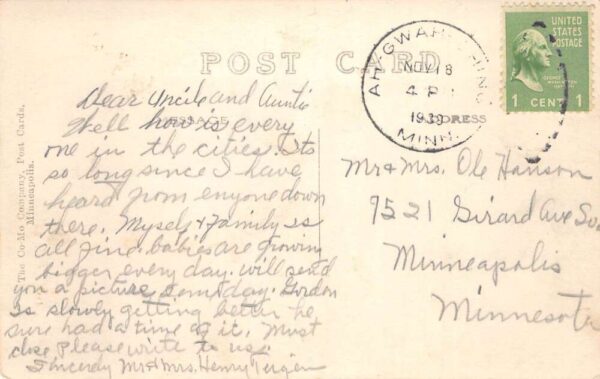 POST CARD
Dear Uncle and Auntie
MESSAGE
Well how is every
one in the cities. Its
so long since I have
heard from enyone down
there. Myself & Family is
all fine. babies are growin
bigger every day. will send
you a picture someday. Gordon
is slowly getting better he
sure had a time of it. Must
close Please write to us.
Sincerly Mr & Mrs. Henry
The Co-Mo Company, Post Cards,
Minneapolis.
AH-GWAH-CHING
NOV 18
4 P
1939
MINN.
ADDRESS
UNITED
STATES
POSTAGE
1 CENT 1
Mr & Mrs. Ole Hanson
9521 Girard Ave So.
Minneapolis
Minnesota